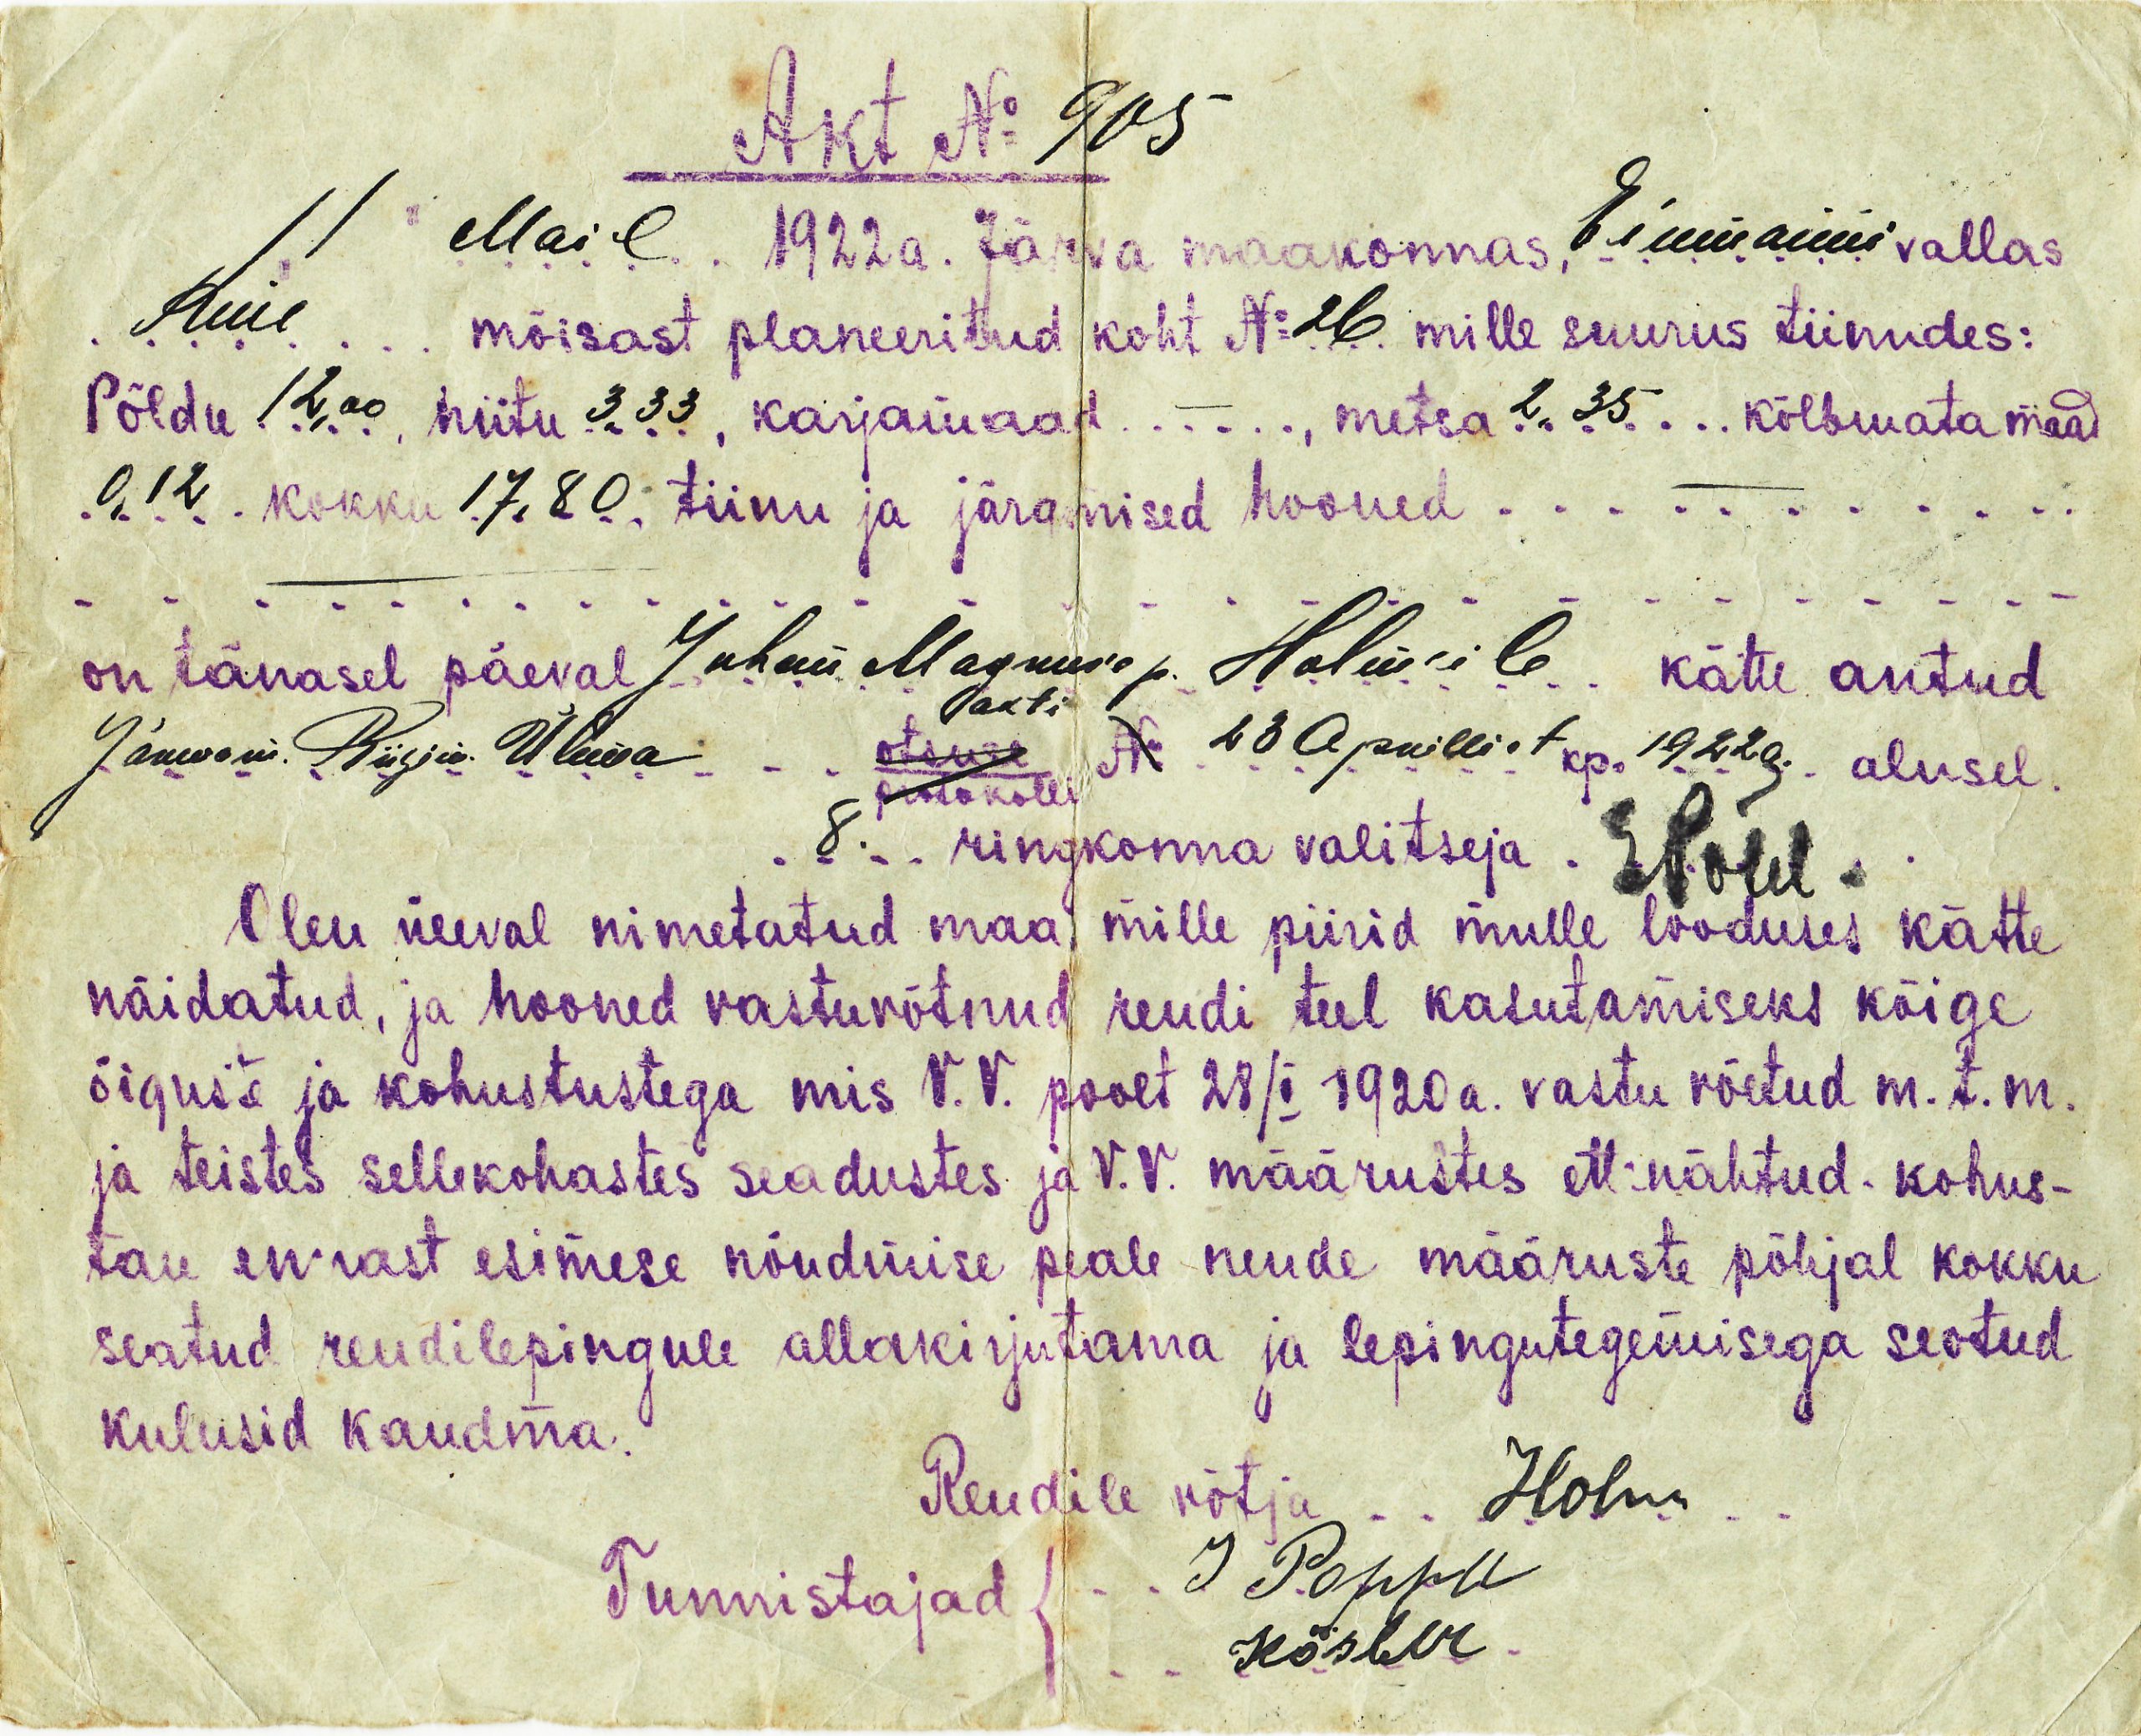 Akt № 905
11 Mail 1922 a. Järva maakonnas, Einmanni vallas
mõisast planeeritud koht № 26 mille suurus tiinudes:
Põldu 12,00, niitu 3.33, karjamaad - , metsa 2.35 kõlbmata maad
0,12 kokku 17.80 tiinu ja järgmised hooned
on tänasel päeval Juhan Magnuse p. Holmile kätte antud
akti
otsuse № 23 Aprillist kp. 1922 a. alusel.
protokolli
8. ringkonna valitseja
Olen üleval nimetatud maa, mille piirid mulle looduses kätte
näidatud, ja hooned vastuvõtnud rendi teel kasutamiseks kõige
õiguste ja kohustustega mis V.V. poolt 28/I 1920 a. vastu võetud m.t.m.
ja teistes sellekohastes seadustes ja V.V. määrustes ettenähtud. kohus-
tan ennast esimese nõudmise peale nende määruste põhjal kokku
seatud rendilepingule allakirjutama ja lepingutegemisega seotud
kulusid kandma.
Rendile võtja Holm
Tunnistajad J Poppel
Kösler